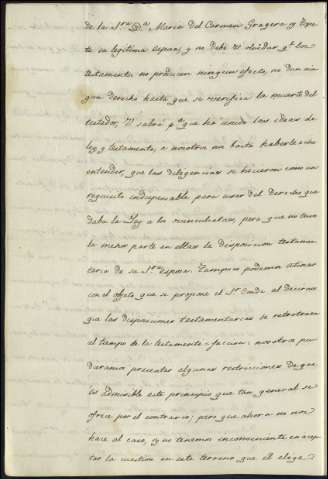 de la S.ra D.a Maria del Carmen Gragera y Tope
te su legitima esposa; y no debe V. olvidar q.e los
testamentos no producen ningun efecto, ni dan nin
gun derecho hasta que se verifica la muerte del
testador. V. sabrá p.r que ha unido las ideas de
ley y testamento, a nosotros nos basta haberle echo
entender, que las diligencias se hicieron como un
requisito indispensable para usar del derecho que
daba la Ley a los vinculistas, pero que no tuvo
la menor parte en ellas la disposicion testamen
taria de su S.ra esposa. Tampoco podemos atinar
con el objeto que se propone el S.r Conde al decirnos
que las disposiciones testamentarias se retrotraen
al tiempo de la testamenti-faccion: nosotros pu
dieramos presentar algunas restricciones de que
es admisible este principio que tan general se
ofrece por el contrario; pero que ahora no nos
hace al caso, y no tenemos inconveniente en acep
tar la cuestion en este terreno que el elege